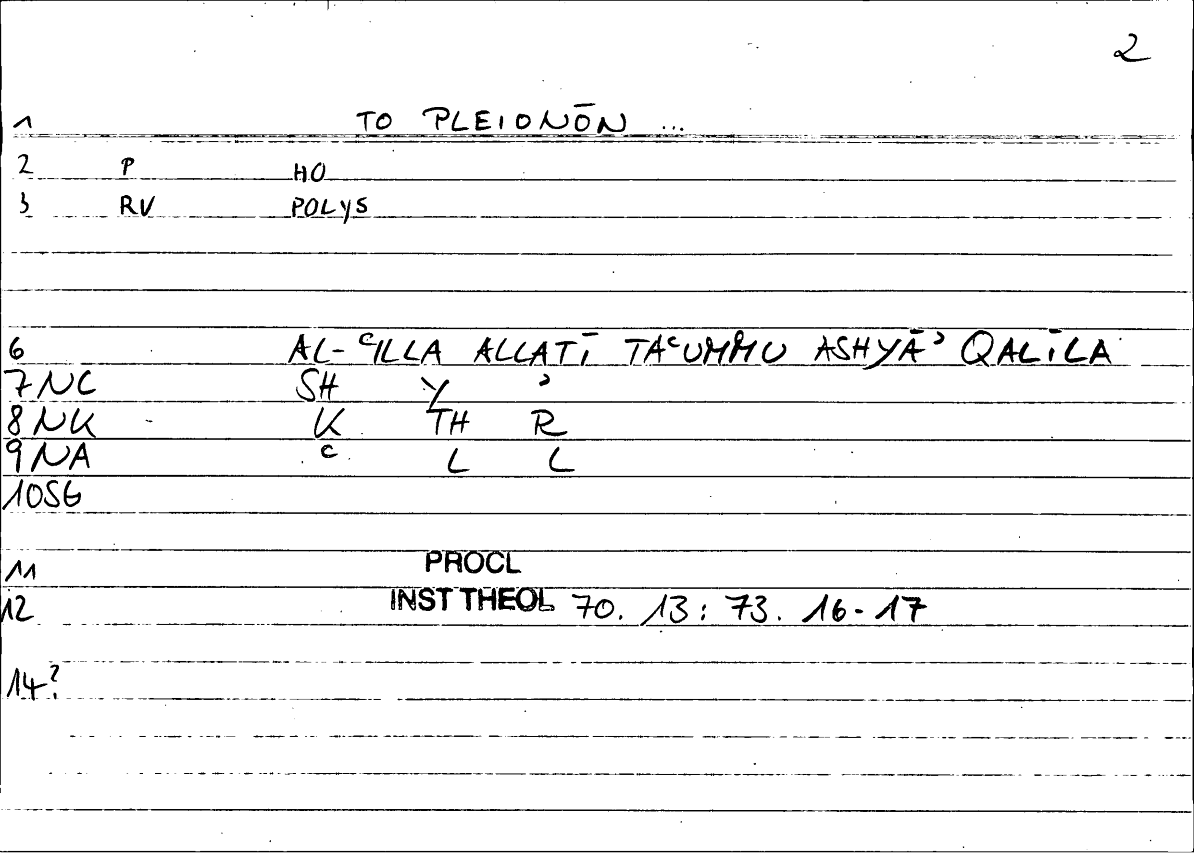 2
1 TO PLEIONŌN ...
2 P HO
3 RV POLYS
6 AL-ʿILLA ALLATĪ TAʿUMMU ASHYĀʾ QALĪLA
7 NC SH Y ʾ
8 NK K TH R
9 NA ʿ L L
10 SG
11 PROCL
12 INST THEOL 70. 13 : 73. 16-17
14?